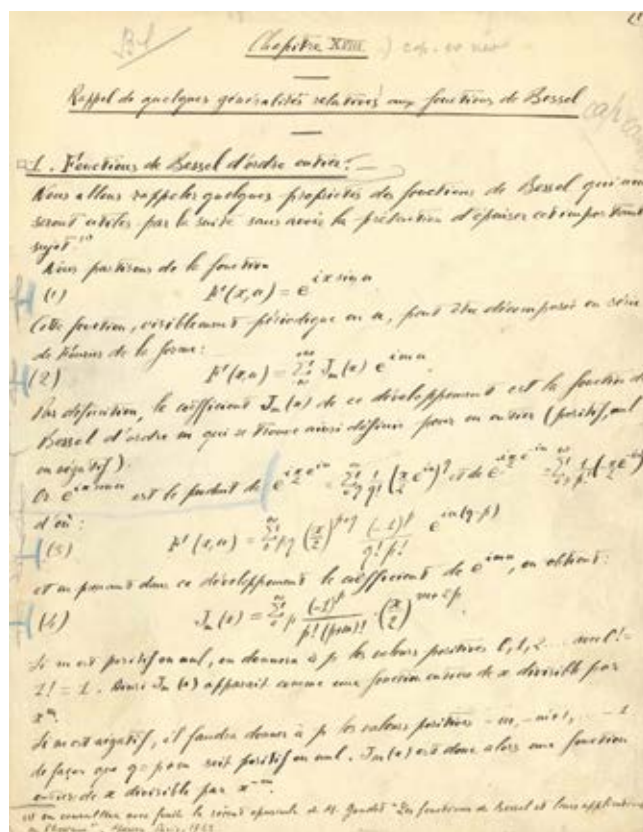 Chapitre XVIII
Rappel de quelques généralités relatives aux fonctions de Bessel
1. Fonctions de Bessel d'ordre entier.
Nous allons rappeler quelques propriétés des fonctions de Bessel qui nous
seront utiles par la suite sans avoir la prétention d'épuiser cet important
sujet
Nous partirons de la fonction
(1) F(x,α) = e^{ix sin α}
Cette fonction, visiblement périodique en α, peut être décomposée en série
de termes de la forme :
(2) F(x,α) = ∑_{-∞}^{+∞} J_m(x) e^{imα}
Par définition, le coefficient J_m(x) de ce développement est la fonction de
Bessel d'ordre m qui se trouve ainsi définie pour m entier (positif, nul
ou négatif).
Or e^{ix sin α} est le produit de
d'où :
(3) F(x,α) = ∑_0^∞ pq (x/2)^{p+q} (-1)^p / q! p! e^{iα(q-p)}
et en prenant dans ce développement le coefficient de e^{imα}, on obtient :
(4) J_m(x) = ∑_0^∞ p (-1)^p / p! (p+m)! . (x/2)^{m+2p}
Si m est positif ou nul, on donnera à p les valeurs positives 0, 1, 2 .... avec 0! =
1! = 1. Ainsi J_m(x) apparaît comme une fonction entière de x divisible par
x^m.
Si m est négatif, il faudra donner à p les valeurs positives -m, -m+1, ....
de façon que q = p+m soit positif ou nul. J_m(x) est donc alors une fonction
entière de x divisible par x^{-m}.
on consultera avec fruit le récent opuscule de M. "Les fonctions de Bessel et leurs applications